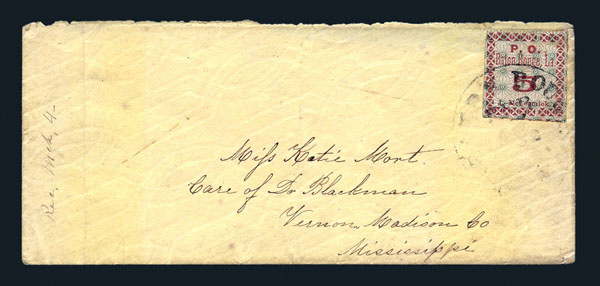 P. O.
Baton Rouge, La.
5
J. McCormick
Miſs Katie Mort.
Care of Dr Blackman
Vernon, Madison Co
Mississippi
Rec. Mch, 4-